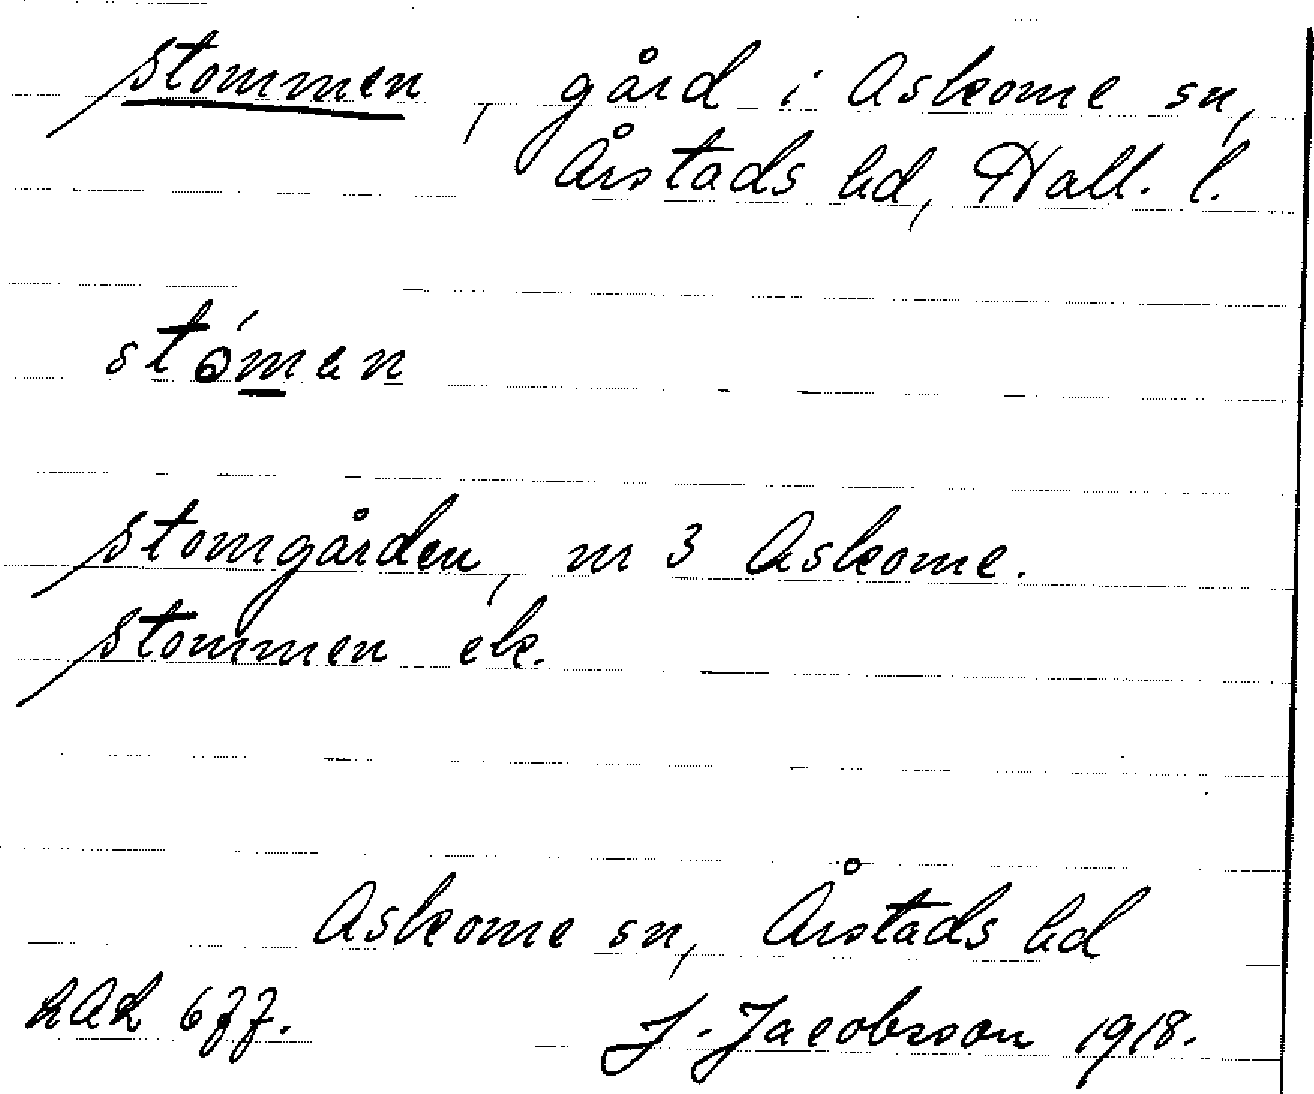 Stommen, gård i Askome sn,
Årstads hd, Hall. l.
stómen
Stomgården, m 3 Askome.
Stommen ek.
Askome sn, Årstads hd
RAÄ 6ff.
J. Jacobsson 1918.